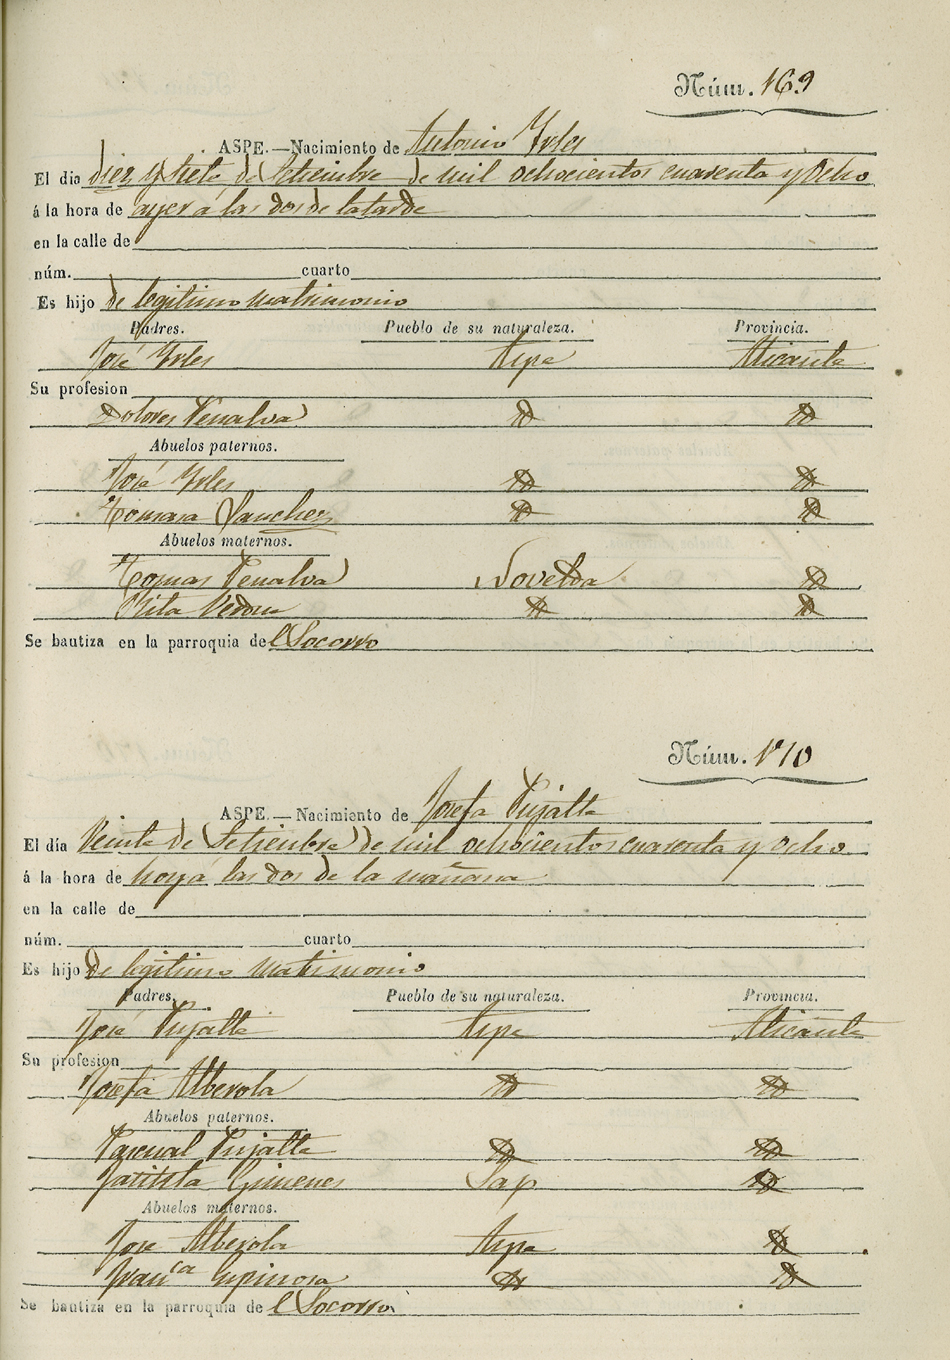 Núm. 169
ASPE.—Nacimiento de Antonio Yrles
El dia diez y siete de Setiembre de mil ochocientos cuarenta y Ocho
á la hora de ayer á las dos de la tarde
en la calle de
núm. cuarto
Es hijo de legitimo matrimonio
Padres. Pueblo de su naturaleza. Provincia.
José Yrles Aspe Alicante
Su profesion
Dolores Penalva
Abuelos paternos.
José Yrles
Tomasa Sanchez
Abuelos maternos.
Tomas Penalva Novelda
Rita
Se bautiza en la parroquia de l Socorro
Núm. 170
ASPE.—Nacimiento de Josefa Pujalte
El día Veinte de Setiembre de mil ochocientos cuarenta y Ocho
á la hora de hoy á las dos de la mañana
en la calle de
núm. cuarto
Es hijo de legitimo matimonio
Padres. Pueblo de su naturaleza. Provincia.
José Pujalte Aspe Alicante
Su profesion
Josefa Alberola
Abuelos paternos.
Pascual Pujalte
Gimenes Sax
Abuelos maternos.
Jose Alberola Aspe
Franca Espinosa
Se bautiza en la parroquia de l Socorro